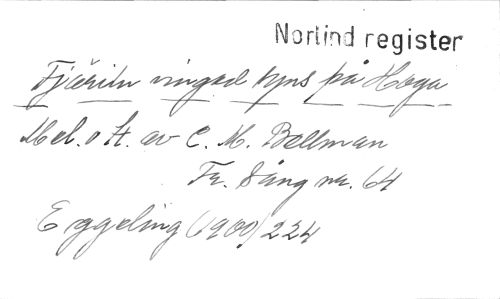 Norlind register
Fjäriln vingad syns på Haga
Mel. o t. av C. M. Bellman
Fr. Sång nr. 64
Eggeling (1900) 224